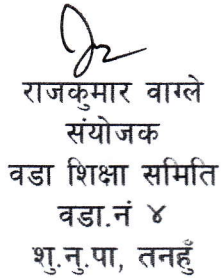 राजकुमार वाग्ले
संयोजक
वडा शिक्षा समिति
वडा.नं ४
शु.नु.पा, तनहुँ